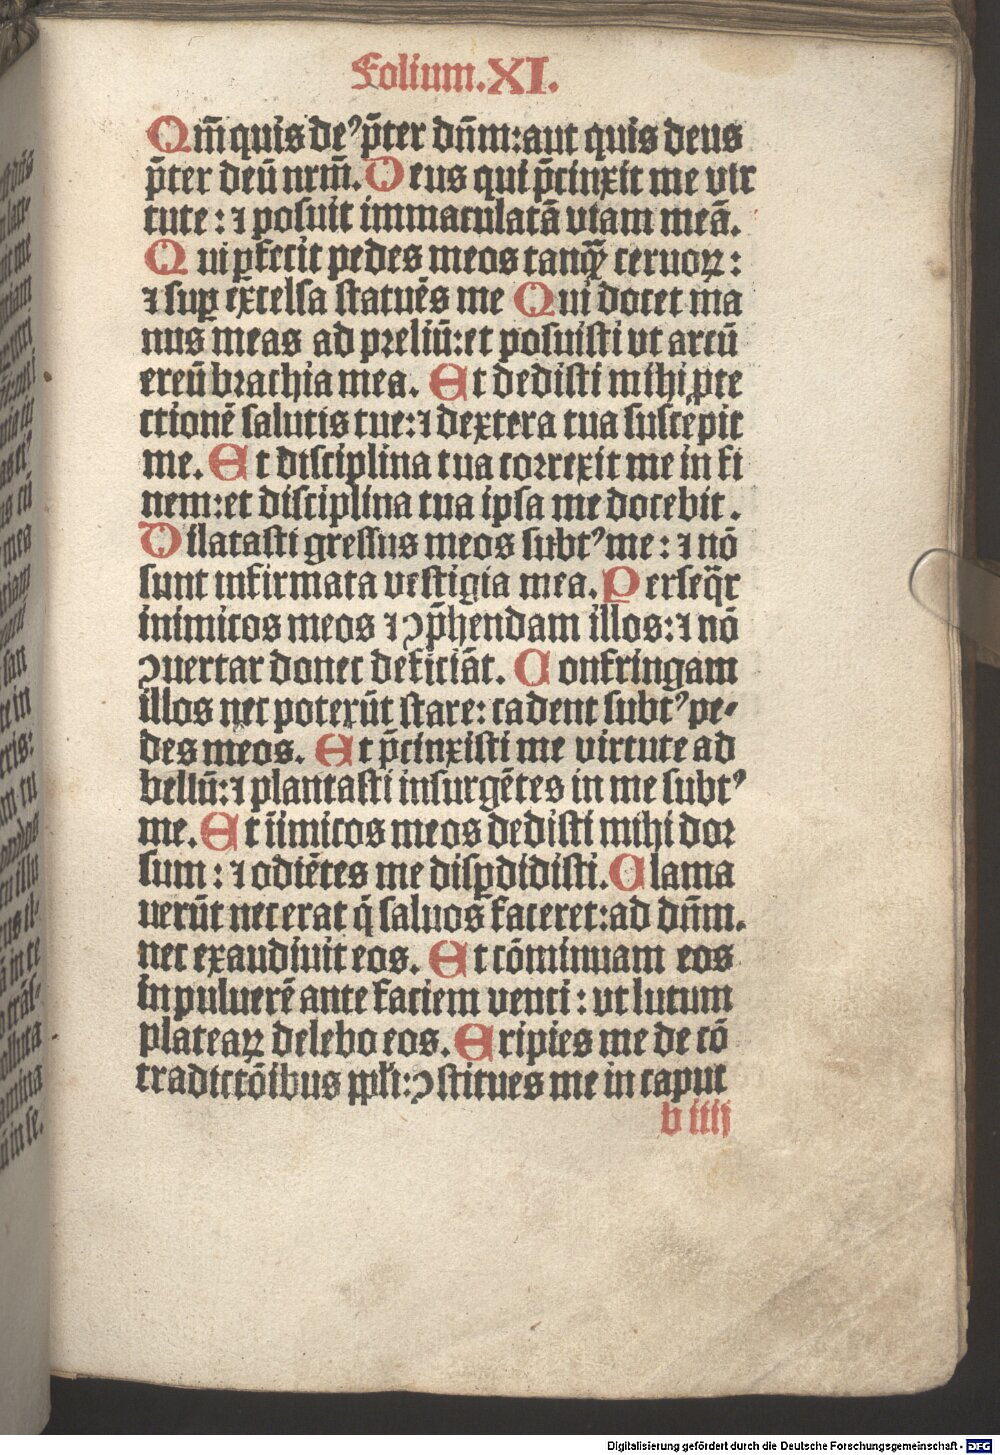 Folium.XI.
Qm̄ quis deꝰ p̄ter dn̄m:aut quis deus
p̄ter deū nrm̄. Deus qui p̄cinxit me vir
tute : ⁊ posuit immaculatā viam meā.
Qui ꝑfecit pedes meos tanqȝ̄ ceruoꝝ :
⁊ suꝑ excelsa statuēs me Qui docet ma
nus meas ad preliū:et posuisti vt arcū
ereū brachia mea. Et dedisti mihi ꝓte
ctionē salutis tue:⁊ dextera tua suscepit
me. Et disciplina tua correxit me in fi
nem:et disciplina tua ipsa me docebit.
Dilatasti gressus meos subtꝰ me : ⁊ nō
sunt infirmata vestigia mea. Perseq̄r
inimicos meos ⁊ ↄp̄hendam illos:⁊ nō
ↄuertar donec deficiāt. Confringam
illos nec poterūt stare: cadent subtꝰ pe-
des meos. Et p̄cinxisti me virtute ad
bellū:⁊ plantasti insurgētes in me subtꝰ
me. Et iīmicos meos dedisti mihi dor
sum : ⁊ odiētes me disꝑdidisti. Clama
uerūt nec erat q̄ saluos faceret:ad dn̄m.
nec exaudiuit eos. Et cōminuam eos
in puluerē ante faciem venti : vt lutum
plateaꝝ delebo eos. Eripies me de cō
tradictōibus ppl̄i:ↄstitues me in caput
b iiij
Digitalisierung gefördert durch die Deutsche Forschungsgemeinschaft - DFG